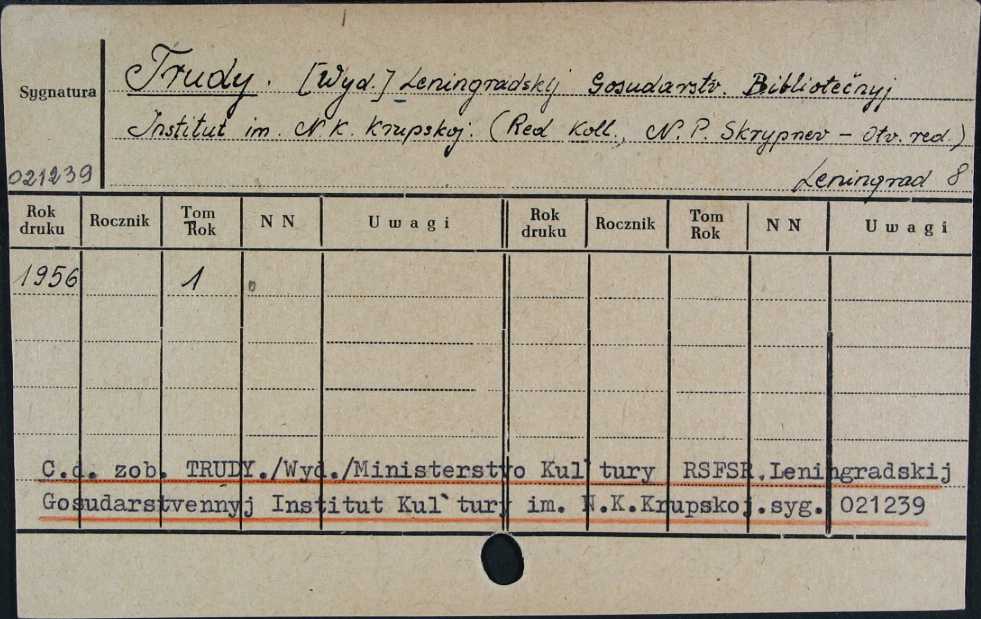 Trudy. [Wyd.] Leningradskij Gosudarstv. Bibliotečnyj
Sygnatura
Institut im. N K. Krupskoj. (Red Koll., N. P. Skrypnev – Otv. red.)
021239
Leningrad 8°
Rok druku Rocznik Tom Rok N N Uwagi Rok druku Rocznik Tom Rok N N Uwagi
1956 1
C.d. zob. TRUDY./Wyd./Ministerstvo Kul`tury RSFSR.Leningradskij
Gosudarstvennyj Institut Kul`tury im. N.K.Krupskoj.syg. 021239